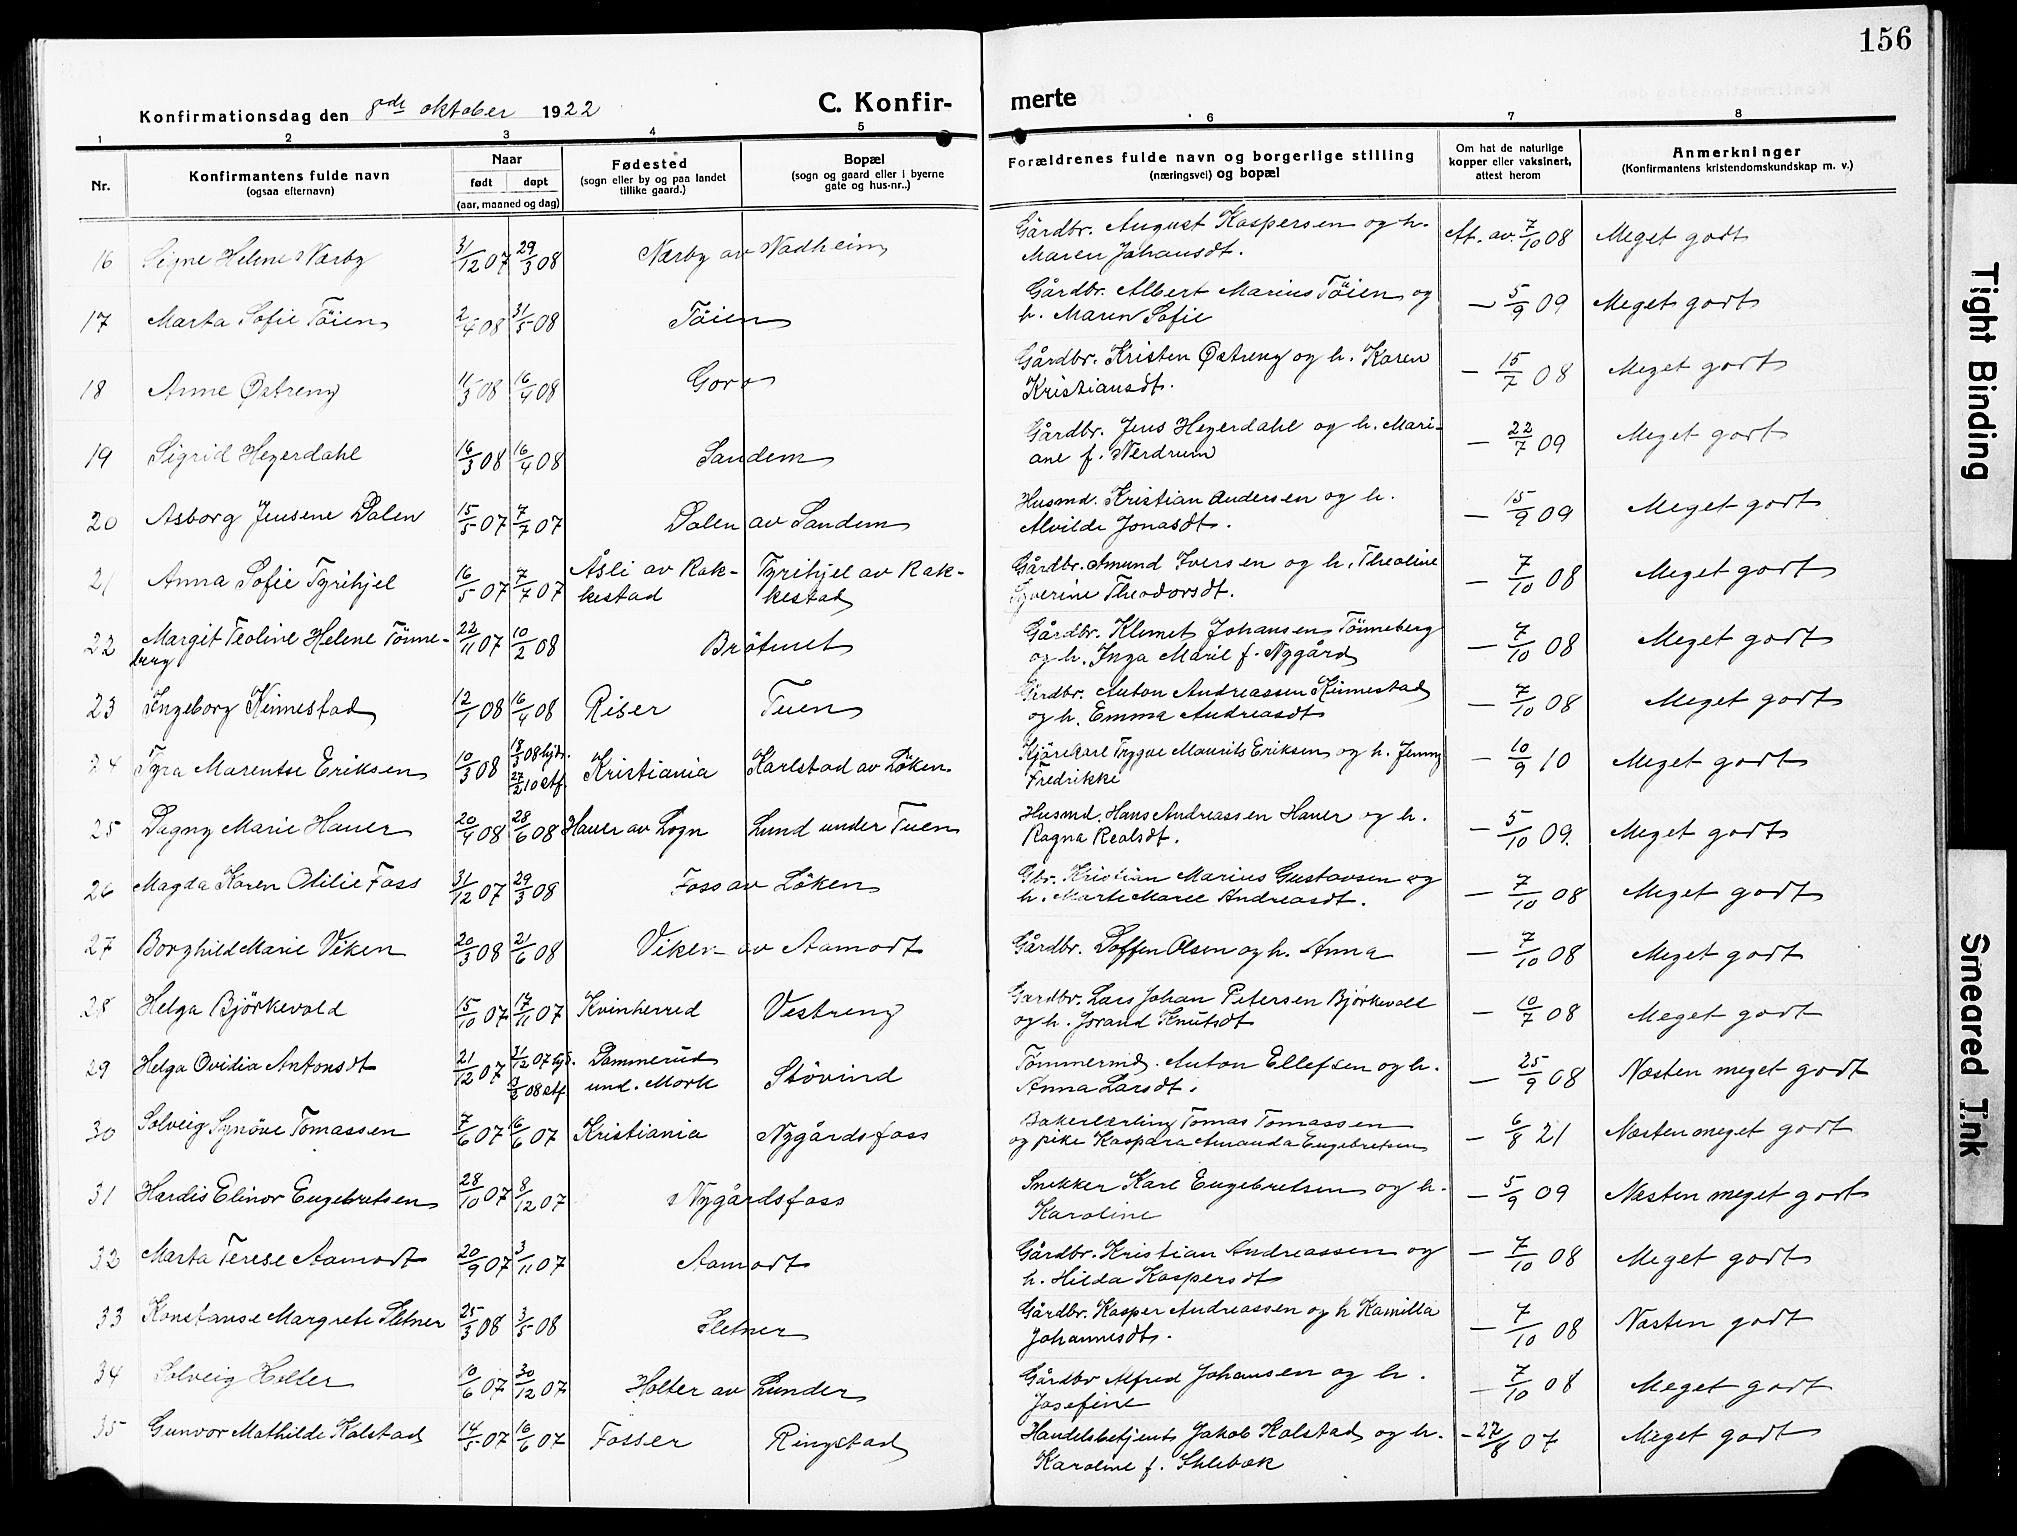 156
Konfirmationsdag den 8de oktober 1922 C. Konfir- merte
1 2 3 4 5 6 7 8
Nr. Konfirmantens fulde navn (ogsaa efternavn) Naar født døpt (aar, maaned og dag) Fødested (sogn eller by og paa landet tillike gaard.) Bopæl (sogn og gaard eller i byerne gate og hus-nr..) Forældrenes fulde navn og borgerlige stilling (næringsvei) og bopæl Om hat de naturlige kopper eller vaksinert, attest herom Anmerkninger (Konfirmantens kristendomskundskap m. v.)
16 Signe Helene Nærby 31/12 07 29/3 08 Nærby av Nadheim Gårdbr. August Kaspersen og h. Maren Johansdt. At. av. 7/10 08 Meget godt
17 Marta Sofie Töien 2/4 08 31/5 08 Töien Gårdbr. Albert Marius Töien og h. Maren Sofie — 5/9 09 Meget godt
18 Anne Østreng 11/3 08 16/4 08 Goro Gårdbr. Kristen Østreng og h. Karen Kristiansdt. — 15/7 08 Meget godt
19 Sigrid Heyerdahl 16/3 08 16/4 08 Sandem Gårdbr. Jens Heyerdahl og h. Mari- ane f. Nerdrum — 22/7 09 Meget godt
20 Asborg Jensene Dalen 15/5 07 7/7 07 Dalen av Sandem Husmd. Kristian Andersen og h. Alvilde Jonasdt. — 15/9 09 Meget godt
21 Anna Sofie Tyrihjel 16/5 07 7/7 07 Åsli av Rak- kestad Tyrihjel av Rak- kestad Gårdbr. Amund Iversen og h. Theoline Syverine Theodorsdt. — 7/10 08 Meget godt
22 Margit Teoline Helene Tönne- berg 22/11 07 10/2 08 Bråtnet Gårdbr. Klemet Johansen Tönneberg og h. Inga Marie f. Nygård — 7/10 08 Meget godt
23 Ingeborg Kinnestad 12/1 08 16/4 08 Riser Tuen Gårdbr. Anton Andreassen Kinnestad og h. Emma Andreasdt — 7/10 08 Meget godt
24 Tyra Marentse Eriksen 10/3 08 18/3 08 hjd. 27/2 10 stf. Kristiania Karlstad av Löken. Kjörekarl Trygve Maurits Eriksen og h. Jenny Fredrikke — 10/9 10 Meget godt
25 Dagny Marie Hauer 20/4 08 28/6 08 Hauer av Sogn Lund under Tuen Husmd. Hans Andreassen Hauer og h. Ragna Realsdt. — 5/10 09. Meget godt
26 Magda Karen Otilie Foss 31/12 07 29/3 08 Foss av Löken Gbr. Kristian Marius Gustavsen og h. Marte Marie Andreasdt. — 7/10 08 Meget godt
27 Borghild Marie Viken 20/3 08 21/6 08 Viken av Aamodt Gårdbr. Doffen Olsen og h. Anna — 7/10 08 Meget godt
28 Helga Björkevold 15/10 07 17/11 07 Kvinherred Vestreng Gardbr. Lars Johan Petersen Björkevold og h. Jorand Knutsdt — 10/7 08 Meget godt
29 Helga Ovidia Antonsdt 21/12 07 31/12 07 hjd. 08 stf. Dammerud und. Mork Stövind Tömmermd. Anton Ellefsen og h. Anna Larsdt. — 25/9 08 Næsten meget godt
30 Solveig Synöve Tomassen 7/6 07 16/6 07 Kristiania Nygårdsfoss Bakerlærling Tomas Tomassen og pike Kaspara Amanda Engebretsen — 6/8 21 Næsten meget godt
31 Hardis Elinor Engebretsen 28/10 07 8/12 07 Nygårdsfoss Snekker Karl Engebretsen og h. Karoline — 5/9 09 Næsten meget godt
32 Marta Terese Aamodt 20/9 07 3/11 07 Aamodt Gårdbr. Kristian Andreassen og h. Hilda Kaspersdt — 7/10 08 Meget godt
33 Konstanse Margrete Sletner 25/3 08 3/5 08 Sletner Gårdbr. Kasper Andreassen og h Kamilla Johannesdt. — 7/10 08 Næsten godt
34 Solveig Holter 10/6 07 30/12 07 Holter av Lunder Gårdbr Alfred Johansen og h. Josefine — 7/10 08 Meget godt
35 Gunvor Mathilde Kolstad 14/5 07 16/6 07 Fosser Ringstad Handelsbetjent Jakob Kolstad og h. Karoline f. Skebæk — 27/8 07 Meget godt
Tight Binding
Smeared Ink